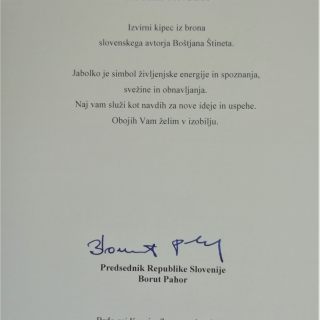 Izvirni kipec iz brona
slovenskega avtorja Boštjana Štineta.
Jabolko je simbol življenjske energije in spoznanja,
svežine in obnavljanja.
Naj vam služi kot navdih za nove ideje in uspehe.
Obojih Vam želim v izobilju.
Predsednik Republike Slovenije
Borut Pahor